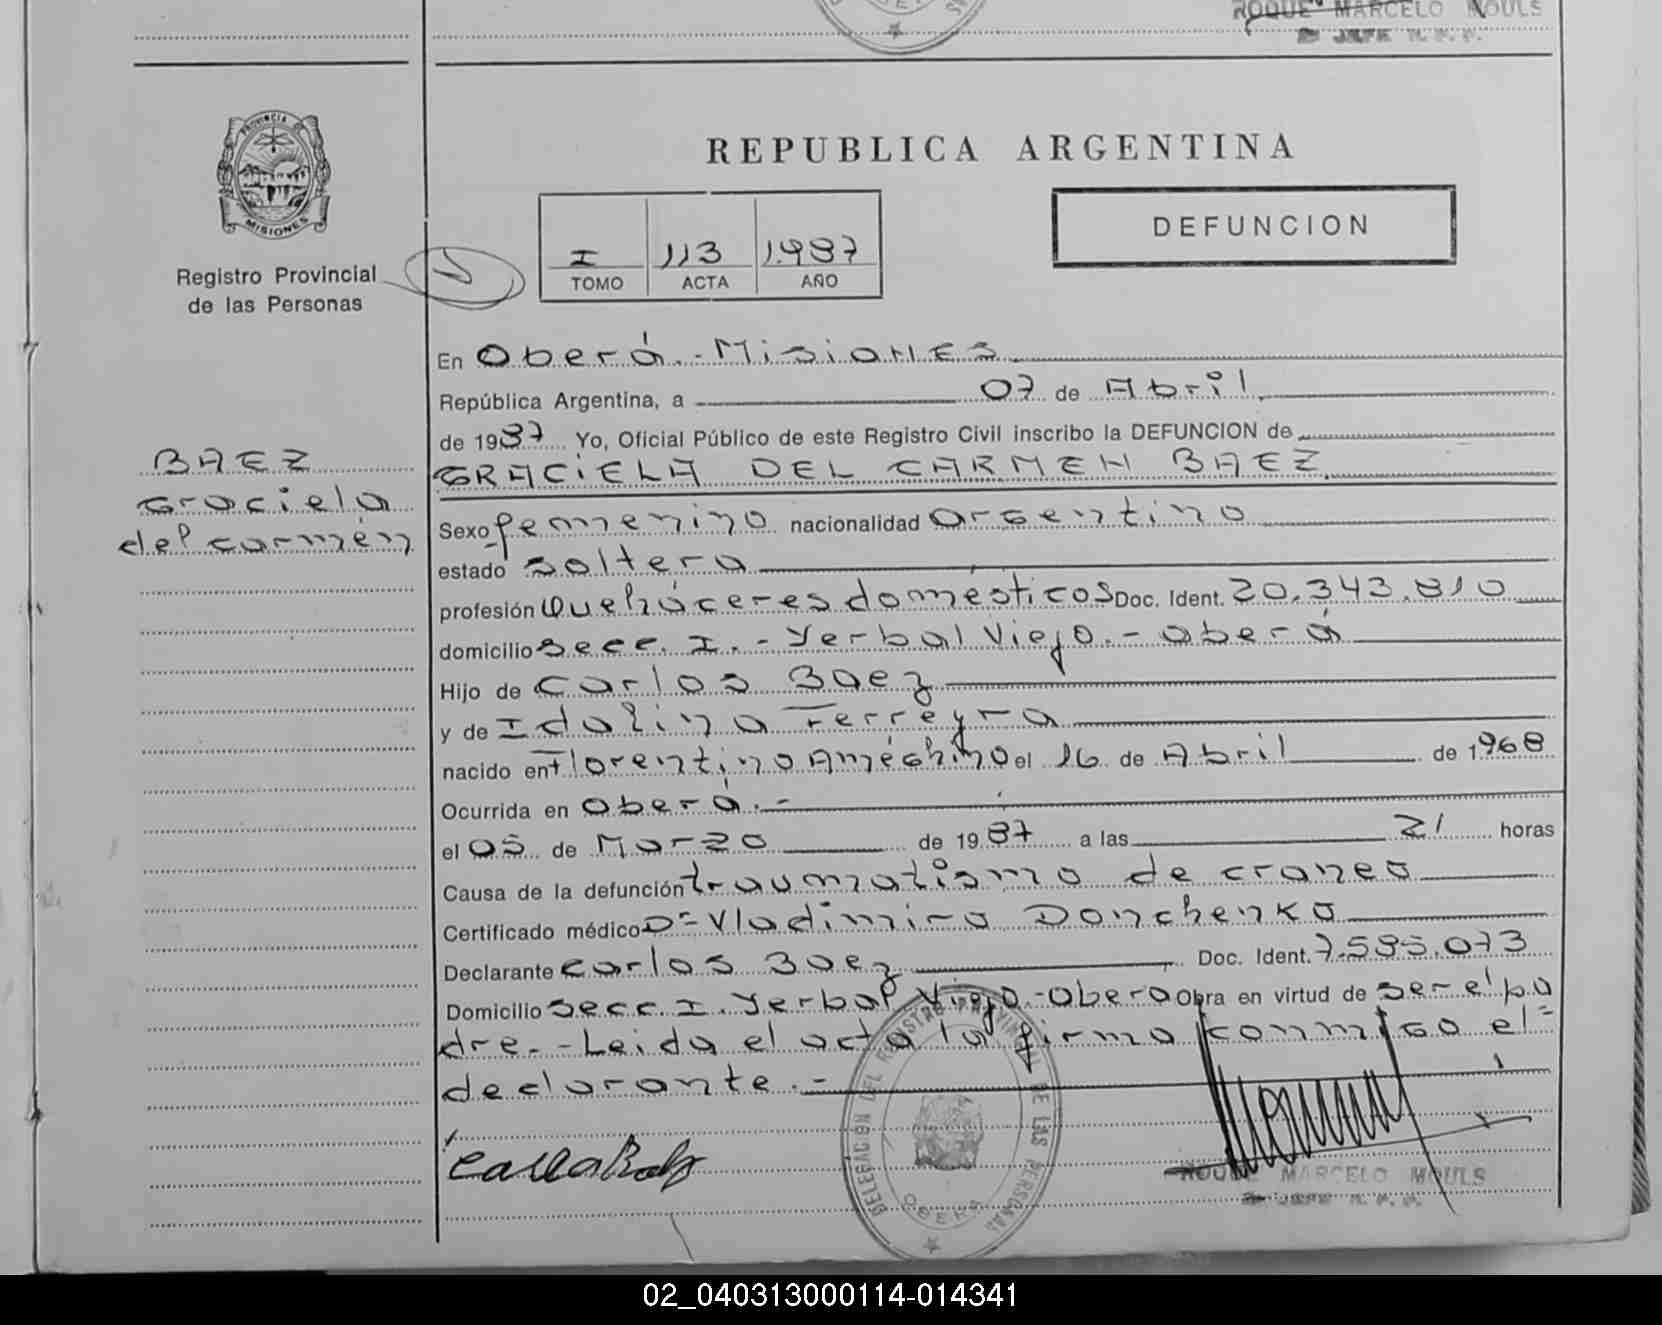 ROQUE MARCELO MOULS
PROVINCIA DE
MISIONES
Registro Provincial
de las Personas
REPUBLICA ARGENTINA
DEFUNCION
I 113 1.987
TOMO ACTA AÑO
En Oberá.-Misiones
República Argentina, a 07 de Abril
de 1987 Yo, Oficial Público de este Registro Civil inscribo la DEFUNCION de
BAEZ
Graciela
del carmen
GRACiELA DEL CARMEN BAEZ
Sexo femenino nacionalidad argentino
estado soltera
profesión Quehaceres domésticos Doc. Ident. 20.343.810
domicilio Secc. I.-Yerbal Viejo.-Oberá
Hijo de Carlos Baez
y de Idalina Ferreyra
nacido en Florentino Améghino el 16 de Abril de 1968
Ocurrida en Oberá.-
el 05 de Marzo de 1987 a las 21 horas
Causa de la defunción traumatismo de craneo
Certificado médico Dr Vladimiro Donchenko
Declarante Carlos Baez Doc. Ident. 7.595.073
Domicilio Secc I. Yerbal Viejo.-Obera Obra en virtud de ser el pa
dre.-Leida el acta la firma conmigo el=
declarante.-
DELEGACION DEL REGISTRO PROVINCIAL DE LAS PERSONAS
OBERA
ROQUE MARCELO MOULS
02_040313000114-014341